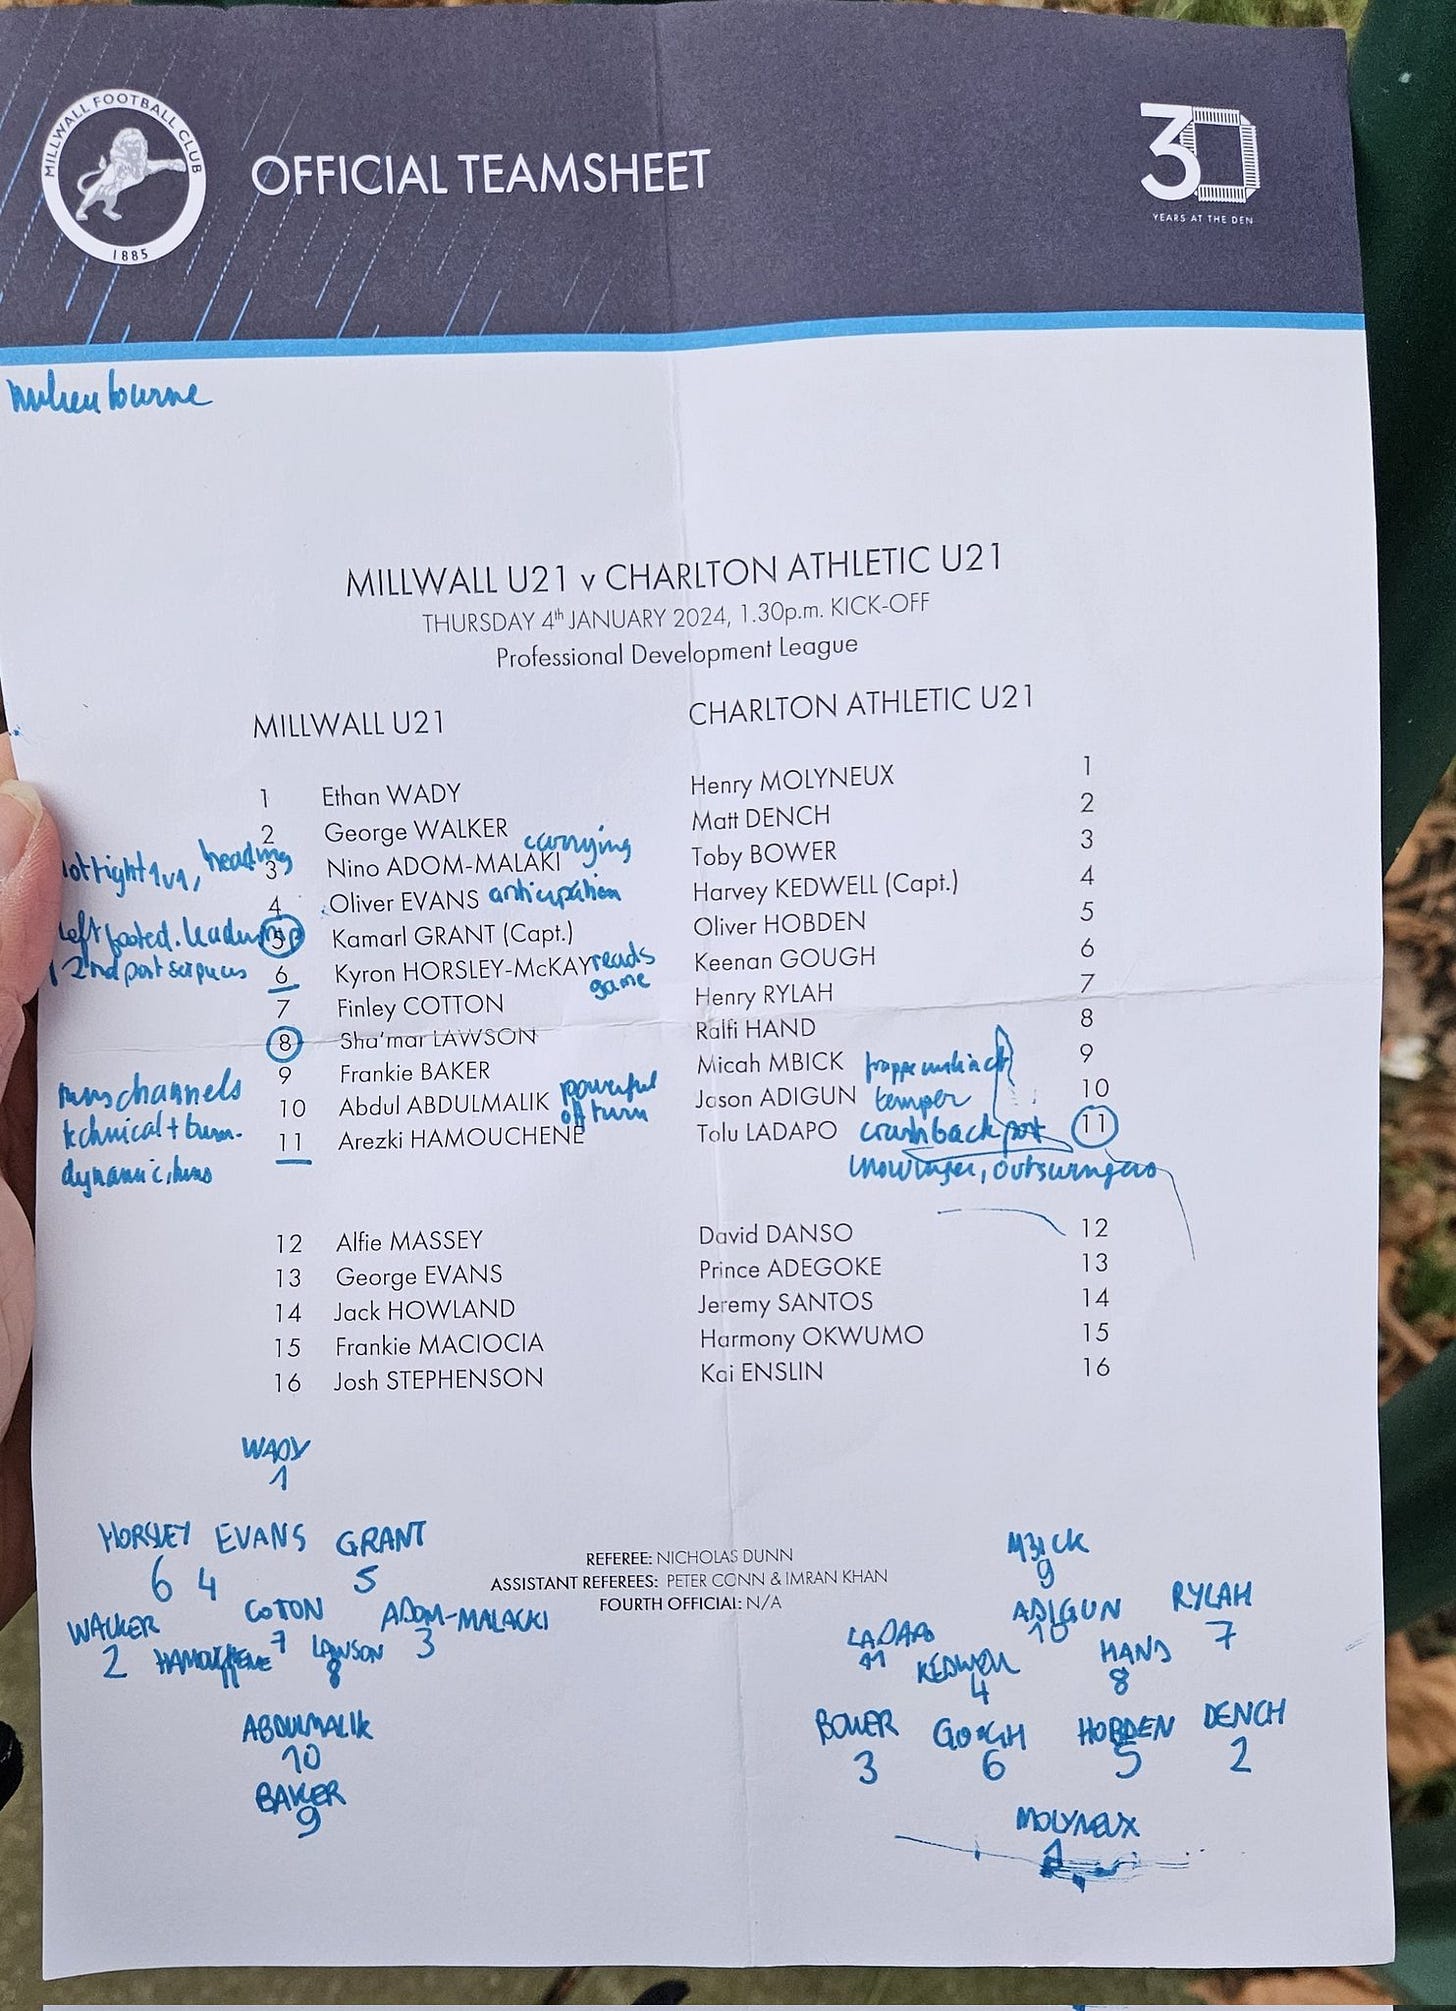 MILLWALL FOOTBALL CLUB
1885
OFFICIAL TEAMSHEET
30
YEARS AT THE DEN
bourne
MILLWALL U21 v CHARLTON ATHLETIC U21
THURSDAY 4th JANUARY 2024, 1.30p.m. KICK-OFF
Professional Development League
MILLWALL U21 CHARLTON ATHLETIC U21
1 Ethan WADY Henry MOLYNEUX 1
2 George WALKER carrying Matt DENCH 2
tight 1v1, heading 3 Nino ADOM-MALAKI Toby BOWER 3
4 Oliver EVANS anticipation Harvey KEDWELL (Capt.) 4
left footed. 5 Kamarl GRANT (Capt.) Oliver HOBDEN 5
2nd post 6 Kyron HORSLEY-McKAY reads game Keenan GOUGH 6
7 Finley COTTON Henry RYLAH 7
8 Sha'mar LAWSON Ralfi HAND 8
runs channels 9 Frankie BAKER Micah MBICK 9
10 Abdul ABDULMALIK powerful on turn Jason ADIGUN temper 10
technical + turn. 11 Arezki HAMOUCHENE Tolu LADAPO crash back post 11
dynamic, outswingers
12 Alfie MASSEY David DANSO 12
13 George EVANS Prince ADEGOKE 13
14 Jack HOWLAND Jeremy SANTOS 14
15 Frankie MACIOCIA Harmony OKWUMO 15
16 Josh STEPHENSON Kai ENSLIN 16
WADY
1
HORSLEY EVANS GRANT
6 4 5
WALKER COTON ADOM-MALACKI
2 HAMOUCHENE 7 LAWSON 3
8
ABDULMALIK
10
BAKER
9
REFEREE: NICHOLAS DUNN
ASSISTANT REFEREES: PETER CONN & IMRAN KHAN
FOURTH OFFICIAL: N/A
MBICK
9
LADAPO ADIGUN RYLAH
11 10 7
KEDWELL HAND
4 8
BOWER GOUGH HOBDEN DENCH
3 6 5 2
MOLYNEUX
1